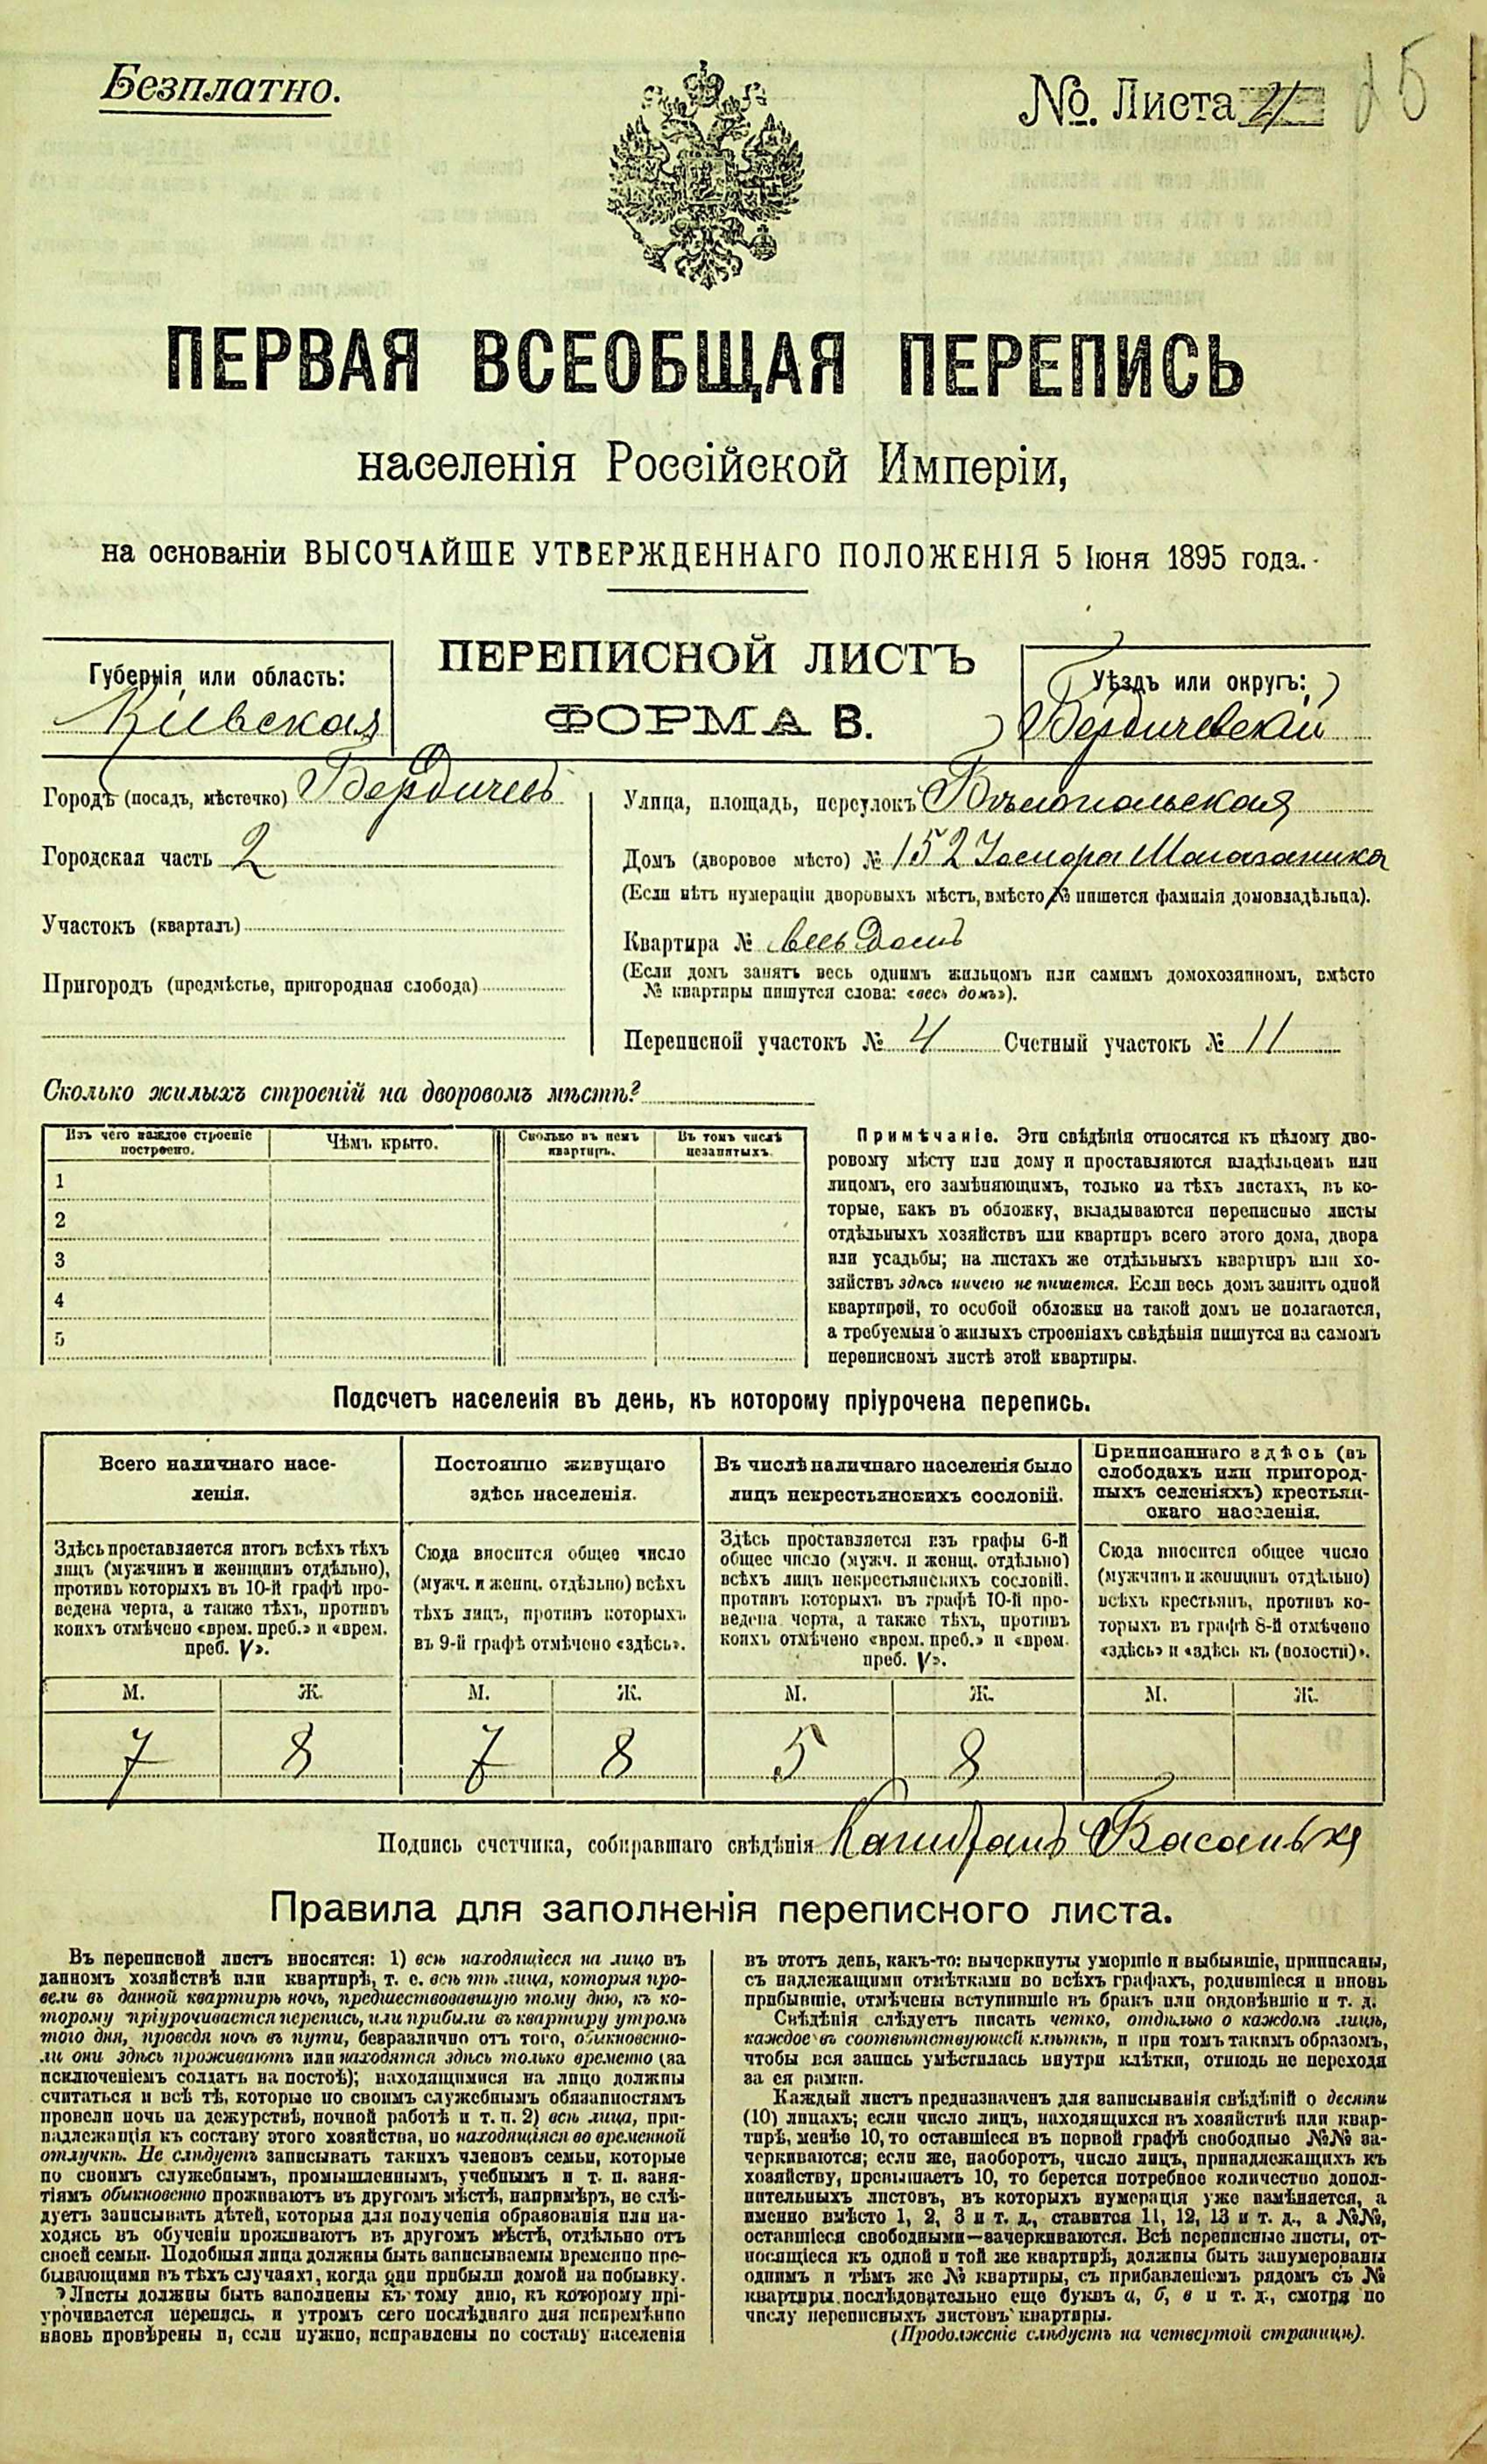 Безплатно.
№. Листа 21
ПЕРВАЯ ВСЕОБЩАЯ ПЕРЕПИСЬ
населенія Россійской Имперіи,
на основаніи ВЫСОЧАЙШЕ УТВЕРЖДЕННАГО ПОЛОЖЕНІЯ 5 Іюня 1895 года.
Губернія или область:
Кіевская
ПЕРЕПИСНОЙ ЛИСТЪ
ФОРМА В.
Уѣздъ или округъ:
Бердичевскій
Городъ (посадъ, мѣстечко) Бердичевъ
Городская часть 2
Участокъ (кварталъ)
Пригородъ (предмѣстье, пригородная слобода)
Улица, площадь, переулокъ Бѣлопольская
Домъ (дворовое мѣсто) № 152
(Если нѣтъ нумераціи дворовыхъ мѣстъ, вмѣсто № пишется фамилія домовладѣльца).
Квартира № весь домъ
(Если домъ занятъ весь однимъ жильцомъ или самимъ домохозяиномъ, вмѣсто
№ квартиры пишутся слова: «весь домъ»).
Переписной участокъ № 4 Счетный участокъ № 11
Сколько жилыхъ строеній на дворовомъ мѣстѣ?
Изъ чего каждое строеніе
построено.
Чѣмъ крыто.
Сколько въ немъ
квартиръ.
Въ томъ числѣ
незанятыхъ.
1
2
3
4
5
Примѣчаніе. Эти свѣдѣнія относятся къ цѣлому дво-
ровому мѣсту или дому и проставляются владѣльцемъ или
лицомъ, его замѣняющимъ, только на тѣхъ листахъ, въ ко-
торые, какъ въ обложку, вкладываются переписные листы
отдѣльныхъ хозяйствъ или квартиръ всего этого дома, двора
или усадьбы; на листахъ же отдѣльныхъ квартиръ или хо-
зяйствъ здѣсь ничего не пишется. Если весь домъ занятъ одной
квартирой, то особой обложки на такой домъ не полагается,
а требуемыя о жилыхъ строеніяхъ свѣдѣнія пишутся на самомъ
переписномъ листѣ этой квартиры.
Подсчетъ населенія въ день, къ которому пріурочена перепись.
Всего наличнаго насе-
ленія.
Здѣсь проставляется итогъ всѣхъ тѣхъ
лицъ (мужчинъ и женщинъ отдѣльно),
противъ которыхъ въ 10-й графѣ про-
ведена черта, а также тѣхъ, противъ
коихъ отмѣчено «врем. преб.» и «врем.
преб. V».
Постоянно живущаго
здѣсь населенія.
Сюда вносится общее число
(мужч. и женщ. отдѣльно) всѣхъ
тѣхъ лицъ, противъ которыхъ
въ 9-й графѣ отмѣчено «здѣсь».
Въ числѣ наличнаго населенія было
лицъ некрестьянскихъ сословій.
Здѣсь проставляется изъ графы 6-й
общее число (мужч. и женщ. отдѣльно)
всѣхъ лицъ некрестьянскихъ сословій,
противъ которыхъ въ графѣ 10-й про-
ведена черта, а также тѣхъ, противъ
коихъ отмѣчено «врем. преб.» и «врем.
преб. V».
Приписаннаго здѣсь (въ
слободахъ или пригород-
ныхъ селеніяхъ) крестьян-
скаго населенія.
Сюда вносится общее число
(мужчинъ и женщинъ отдѣльно)
всѣхъ крестьянъ, противъ ко-
торыхъ въ графѣ 8-й отмѣчено
«здѣсь» и «здѣсь къ (волости)».
М. Ж. М. Ж. М. Ж. М. Ж.
7 8 7 8 5 8
Подпись счетчика, собиравшаго свѣдѣнія Капитанъ
Правила для заполненія переписного листа.
Въ переписной листъ вносятся: 1) всѣ находящіеся на лицо въ
данномъ хозяйствѣ или квартирѣ, т. е. всѣ тѣ лица, которыя про-
вели въ данной квартирѣ ночь, предшествовавшую тому дню, къ ко-
торому пріурочивается перепись, или прибыли въ квартиру утромъ
того дня, проведя ночь въ пути, безразлично отъ того, обыкновенно-
ли они здѣсь проживаютъ или находятся здѣсь только временно (за
исключеніемъ солдатъ на постоѣ); находящимися на лицо должны
считаться и всѣ тѣ, которые по своимъ служебнымъ обязанностямъ
провели ночь на дежурствѣ, ночной работѣ и т. п. 2) всѣ лица, при-
надлежащія къ составу этого хозяйства, но находящіяся во временной
отлучкѣ. Не слѣдуетъ записывать такихъ членовъ семьи, которые
по своимъ служебнымъ, промышленнымъ, учебнымъ и т. п. заня-
тіямъ обыкновенно проживаютъ въ другомъ мѣстѣ, напримѣръ, не слѣ-
дуетъ записывать дѣтей, которыя для полученія образованія или на-
ходясь въ обученіи проживаютъ въ другомъ мѣстѣ, отдѣльно отъ
своей семьи. Подобныя лица должны быть записываемы временно пре-
бывающими въ тѣхъ случаяхъ, когда они прибыли домой на побывку.
Листы должны быть заполнены къ тому дню, къ которому прі-
урочивается перепись, и утромъ сего послѣдняго дня непремѣнно
вновь провѣрены и, если нужно, исправлены по составу населенія
въ этотъ день, какъ-то: вычеркнуты умершіе и выбывшіе, приписаны,
съ надлежащими отмѣтками во всѣхъ графахъ, родившіеся и вновь
прибывшіе, отмѣчены вступившіе въ бракъ или овдовѣвшіе и т. д.
Свѣдѣнія слѣдуетъ писать четко, отдѣльно о каждомъ лицѣ,
каждое въ соотвѣтствующей клѣткѣ, и при томъ такимъ образомъ,
чтобы вся запись умѣстилась внутри клѣтки, отнюдь не переходя
за ея рамки.
Каждый листъ предназначенъ для записыванія свѣдѣній о десяти
(10) лицахъ; если число лицъ, находящихся въ хозяйствѣ или квар-
тирѣ, менѣе 10, то оставшіеся въ первой графѣ свободные №№ за-
черкиваются; если же, наоборотъ, число лицъ, принадлежащихъ къ
хозяйству, превышаетъ 10, то берется потребное количество допол-
нительныхъ листовъ, въ которыхъ нумерація уже измѣняется, а
именно вмѣсто 1, 2, 3 и т. д., ставится 11, 12, 13 и т. д., а №№,
оставшіеся свободными—зачеркиваются. Всѣ переписные листы, от-
носящіеся къ одной и той же квартирѣ, должны быть занумерованы
однимъ и тѣмъ же № квартиры, съ прибавленіемъ рядомъ съ №
квартиры послѣдовательно еще буквъ а, б, в и т. д., смотря по
числу переписныхъ листовъ квартиры.
(Продолженіе слѣдуетъ на четвертой страницѣ).